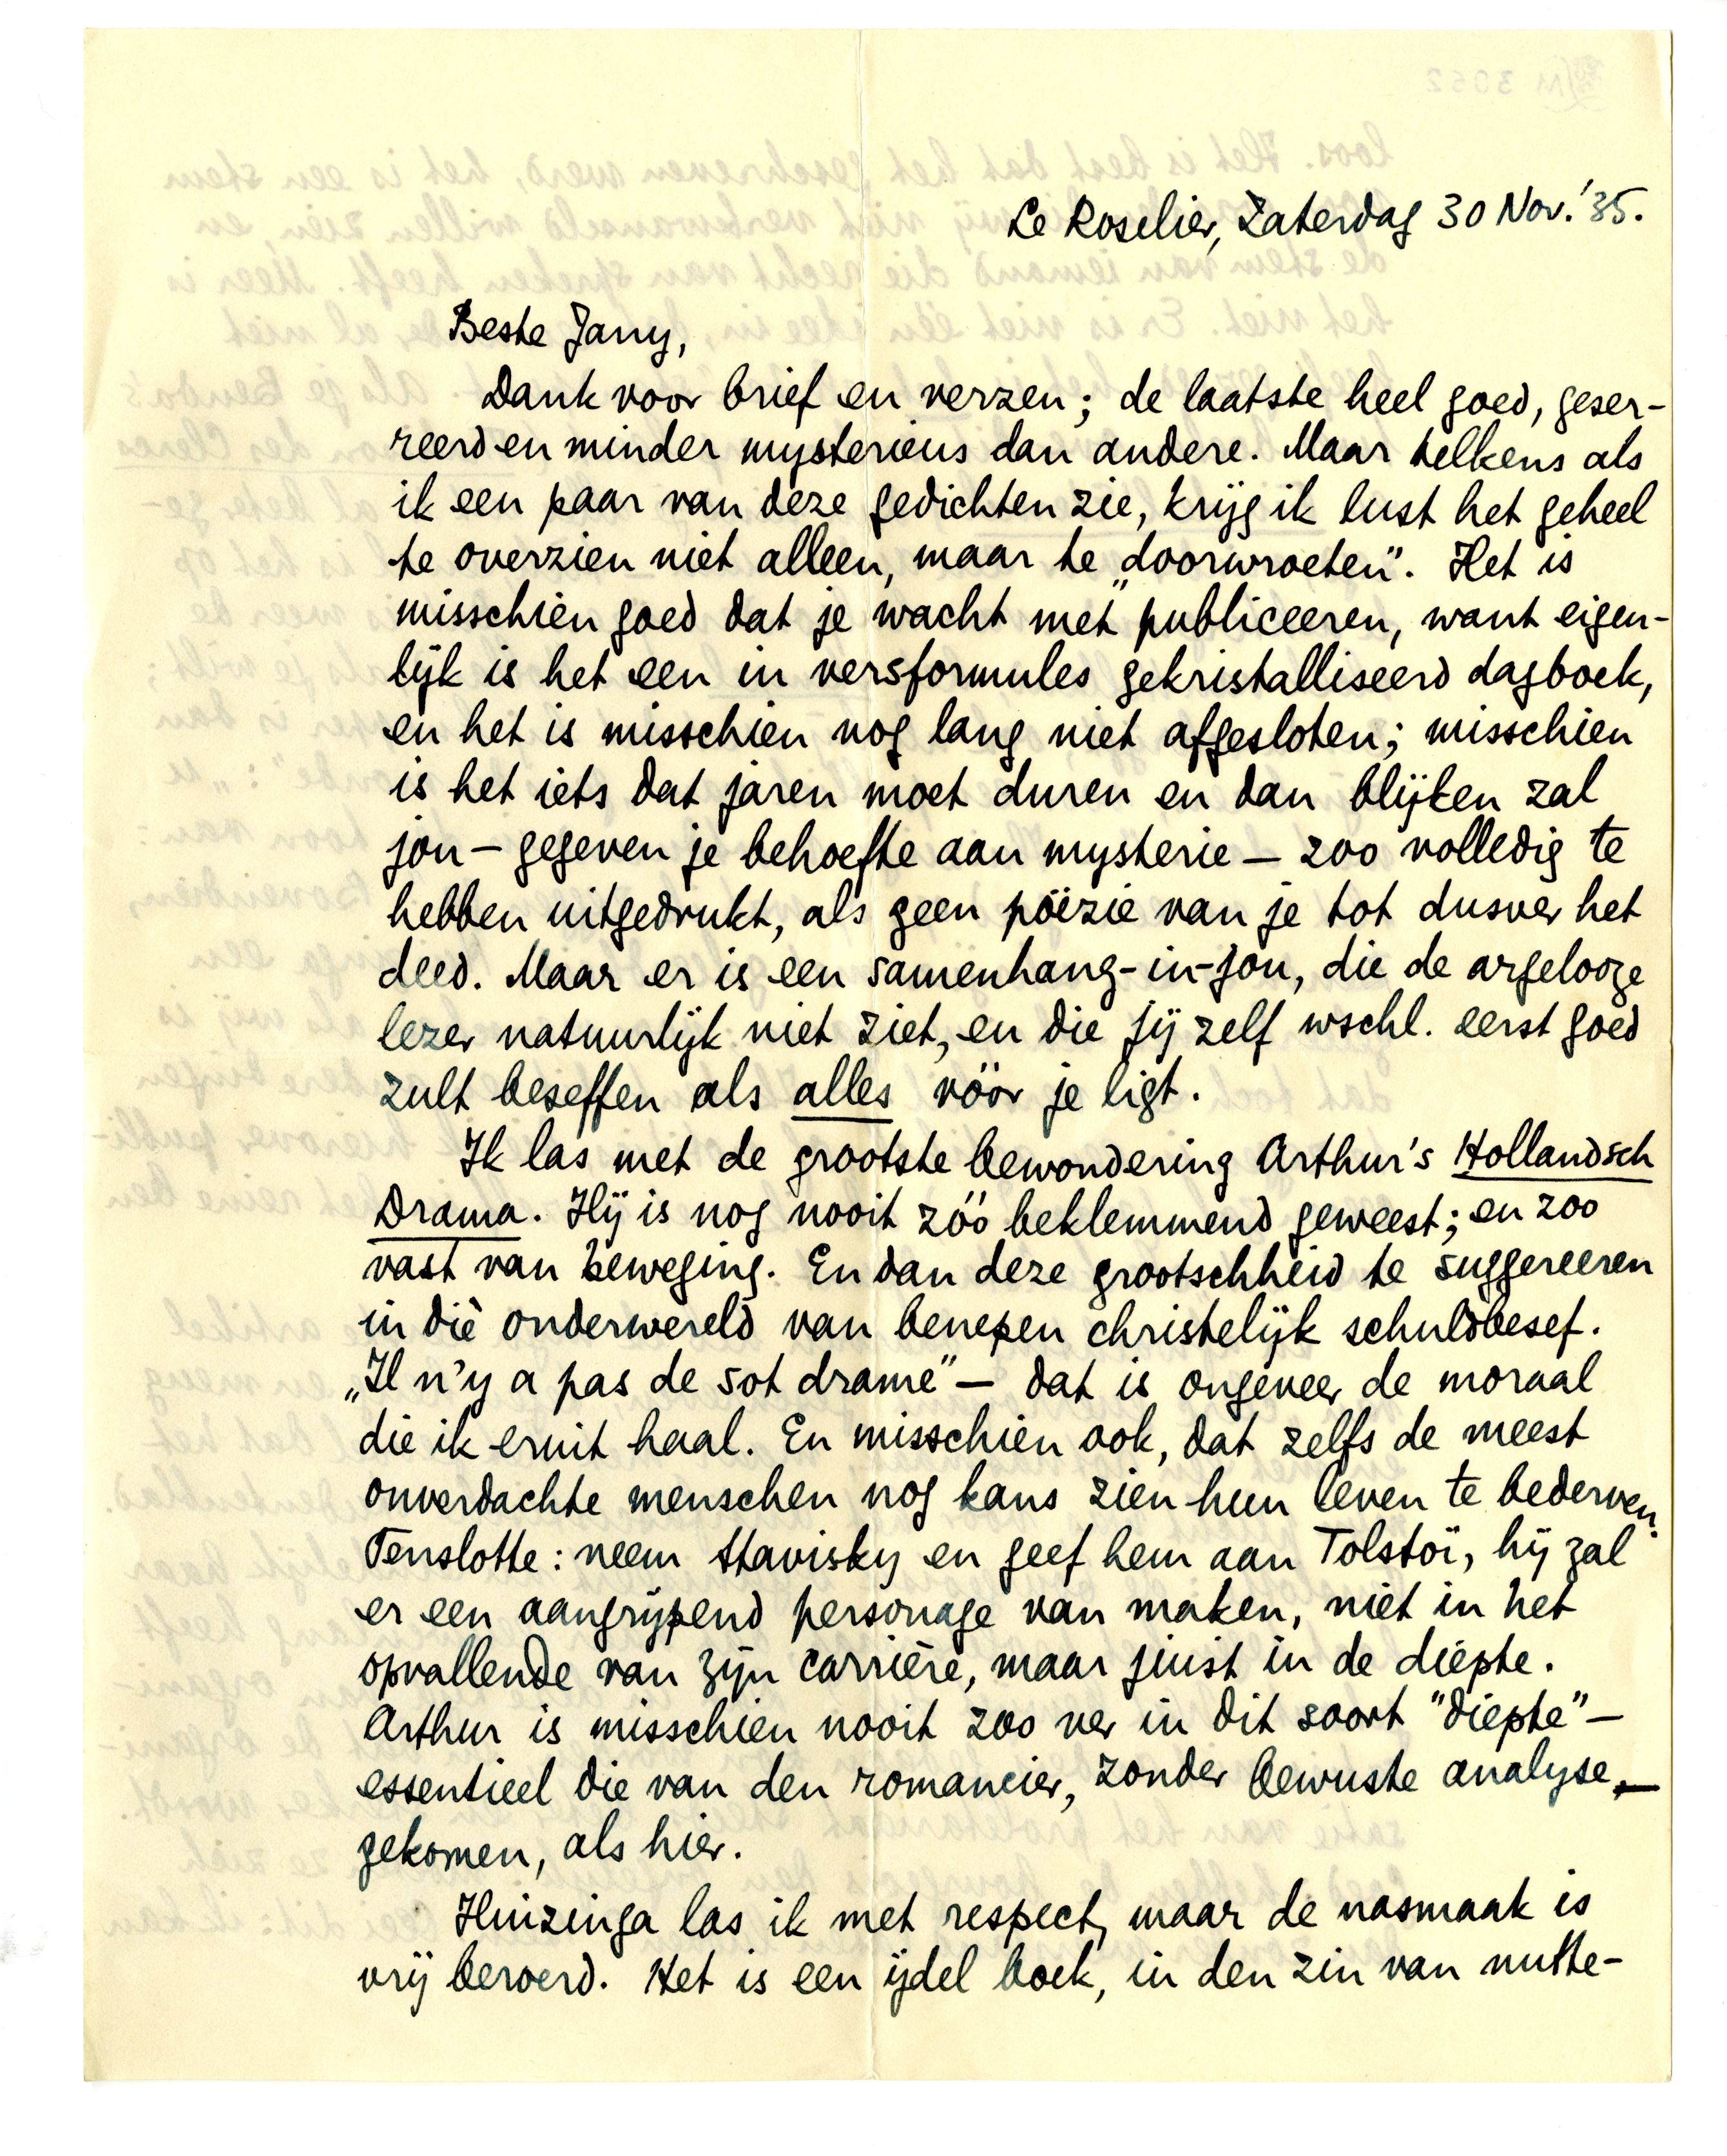 Le Roselier, Zaterdag 30 Nov. '35.
Beste Jany,
Dank voor brief en verzen; de laatste heel goed, geser-
reerd en minder mysterieus dan andere. Maar telkens als
ik een paar van deze gedichten zie, krijg ik lust het geheel
te overzien niet alleen, maar te „doorwroeten". Het is
misschien goed dat je wacht met publiceeren, want eigen-
lijk is het een in versformules gekristalliseerd dagboek,
en het is misschien nog lang niet afgesloten; misschien
is het iets dat jaren moet duren en dan blijken zal
jou — gegeven je behoefte aan mysterie — zoo volledig te
hebben uitgedrukt, als geen poëzie van je tot dusver het
deed. Maar er is een samenhang-in-jou, die de argelooze
lezer natuurlijk niet ziet, en die jij zelf wschl. eerst goed
zult beseffen als alles vóór je ligt.
Ik las met de grootste bewondering Arthur's Hollandsch
Drama. Hij is nog nooit zóó beklemmend geweest; en zoo
vast van beweging. En dan deze grootschheid te suggereeren
in dìè onderwereld van benepen christelijk schuldbesef.
„Il n'y a pas de sot drame" — dat is ongeveer de moraal
die ik eruit haal. En misschien ook, dat zelfs de meest
onverdachte menschen nog kans zien hun leven te bederven.
Tenslotte: neem Stavisky en geef hem aan Tolstoï, hij zal
er een aangrijpend personage van maken, niet in het
opvallende van zijn carrière, maar juist in de diepte.
Arthur is misschien nooit zoo ver in dit soort "diepte" —
essentieel die van den romancier, zonder bewuste analyse, —
gekomen, als hier.
Huizinga las ik met respect, maar de nasmaak is
vrij beroerd. Het is een ijdel boek, in den zin van nutte-